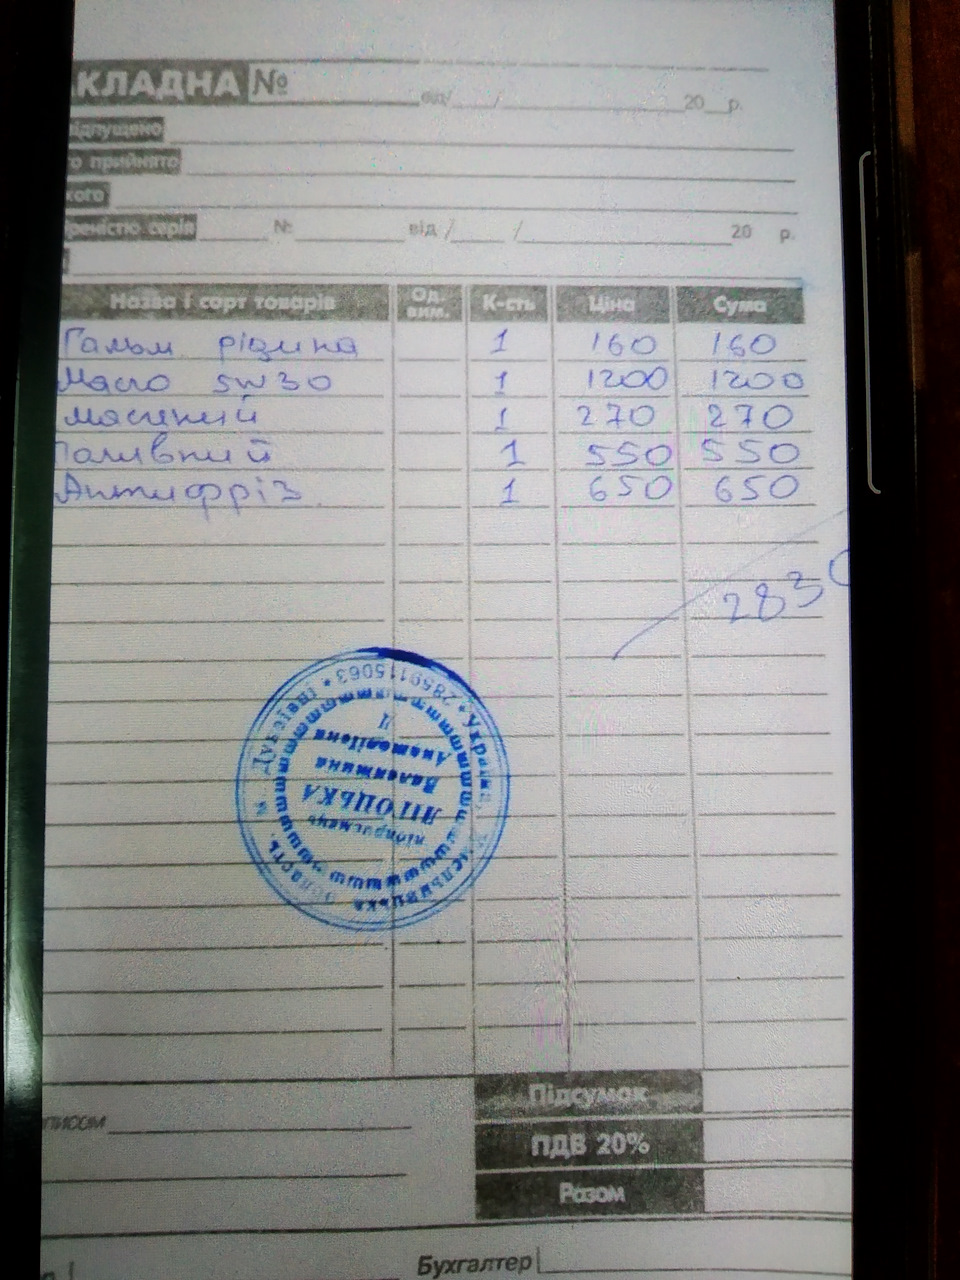 АКЛАДНА № від/ / 20 р.
відпущено
го прийнято
кого
реністю серія № від / / 20 р.
Назва і сорт товарів Од. вим. К-сть Ціна Сума
Гальм рідина 1 160 160
Масло 5w30 1 1200 1200
масляний 1 270 270
Паливний 1 550 550
Антифріз 1 650 650
2830
Україна, Хмельницька область, м. Дунаївці * 2859115063 *
підприємець
Валентина
Анатоліївна
Підсумок
писом
ПДВ 20%
Разом
Бухгалтер